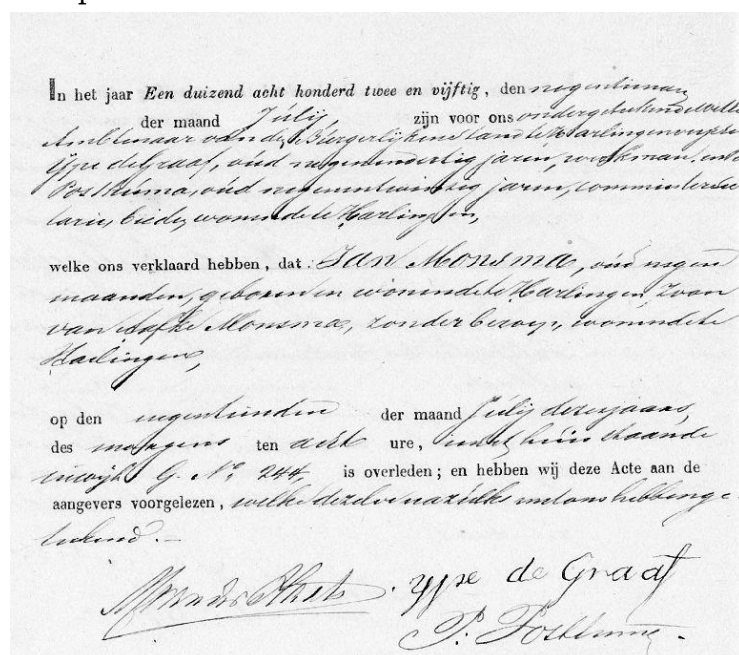 In het jaar Een duizend acht honderd twee en vijftig, den negentienden
der maand Julij, zijn voor ons ondergeteekende
Ambtenaar van den Burgerlijken stand te Harlingen
Ype de Graaf, oud negenendertig jaren, werkman, en
Posthuma, oud negenentwintig jaren, commies ter secre
tarie, beide, wonende te Harlingen,
welke ons verklaard hebben, dat Jan Monsma, oud negen
maanden, geboren en wonende te Harlingen, zoon
van Aafke Monsma, zonder beroep, wonende te
Harlingen,
op den negentienden der maand Julij dezes jaars,
des morgens ten acht ure, in het huis staande
in wijk G. No. 244, is overleden; en hebben wij deze Acte aan de
aangevers voorgelezen, welke dezelve nazulks met ons hebben ge-
teekend.-
Ype de Graaf
P. Posthuma.